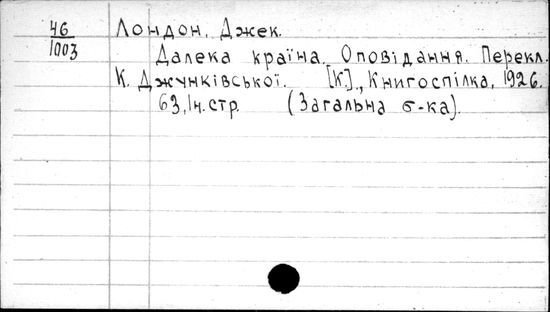 46 Лондон, Джек.
1003 Далека країна. Оповідання. Перекл.
К. Джунківської. [К]., Книгоспілка, 1926.
63, Ін. стр. (Загальна б-ка).